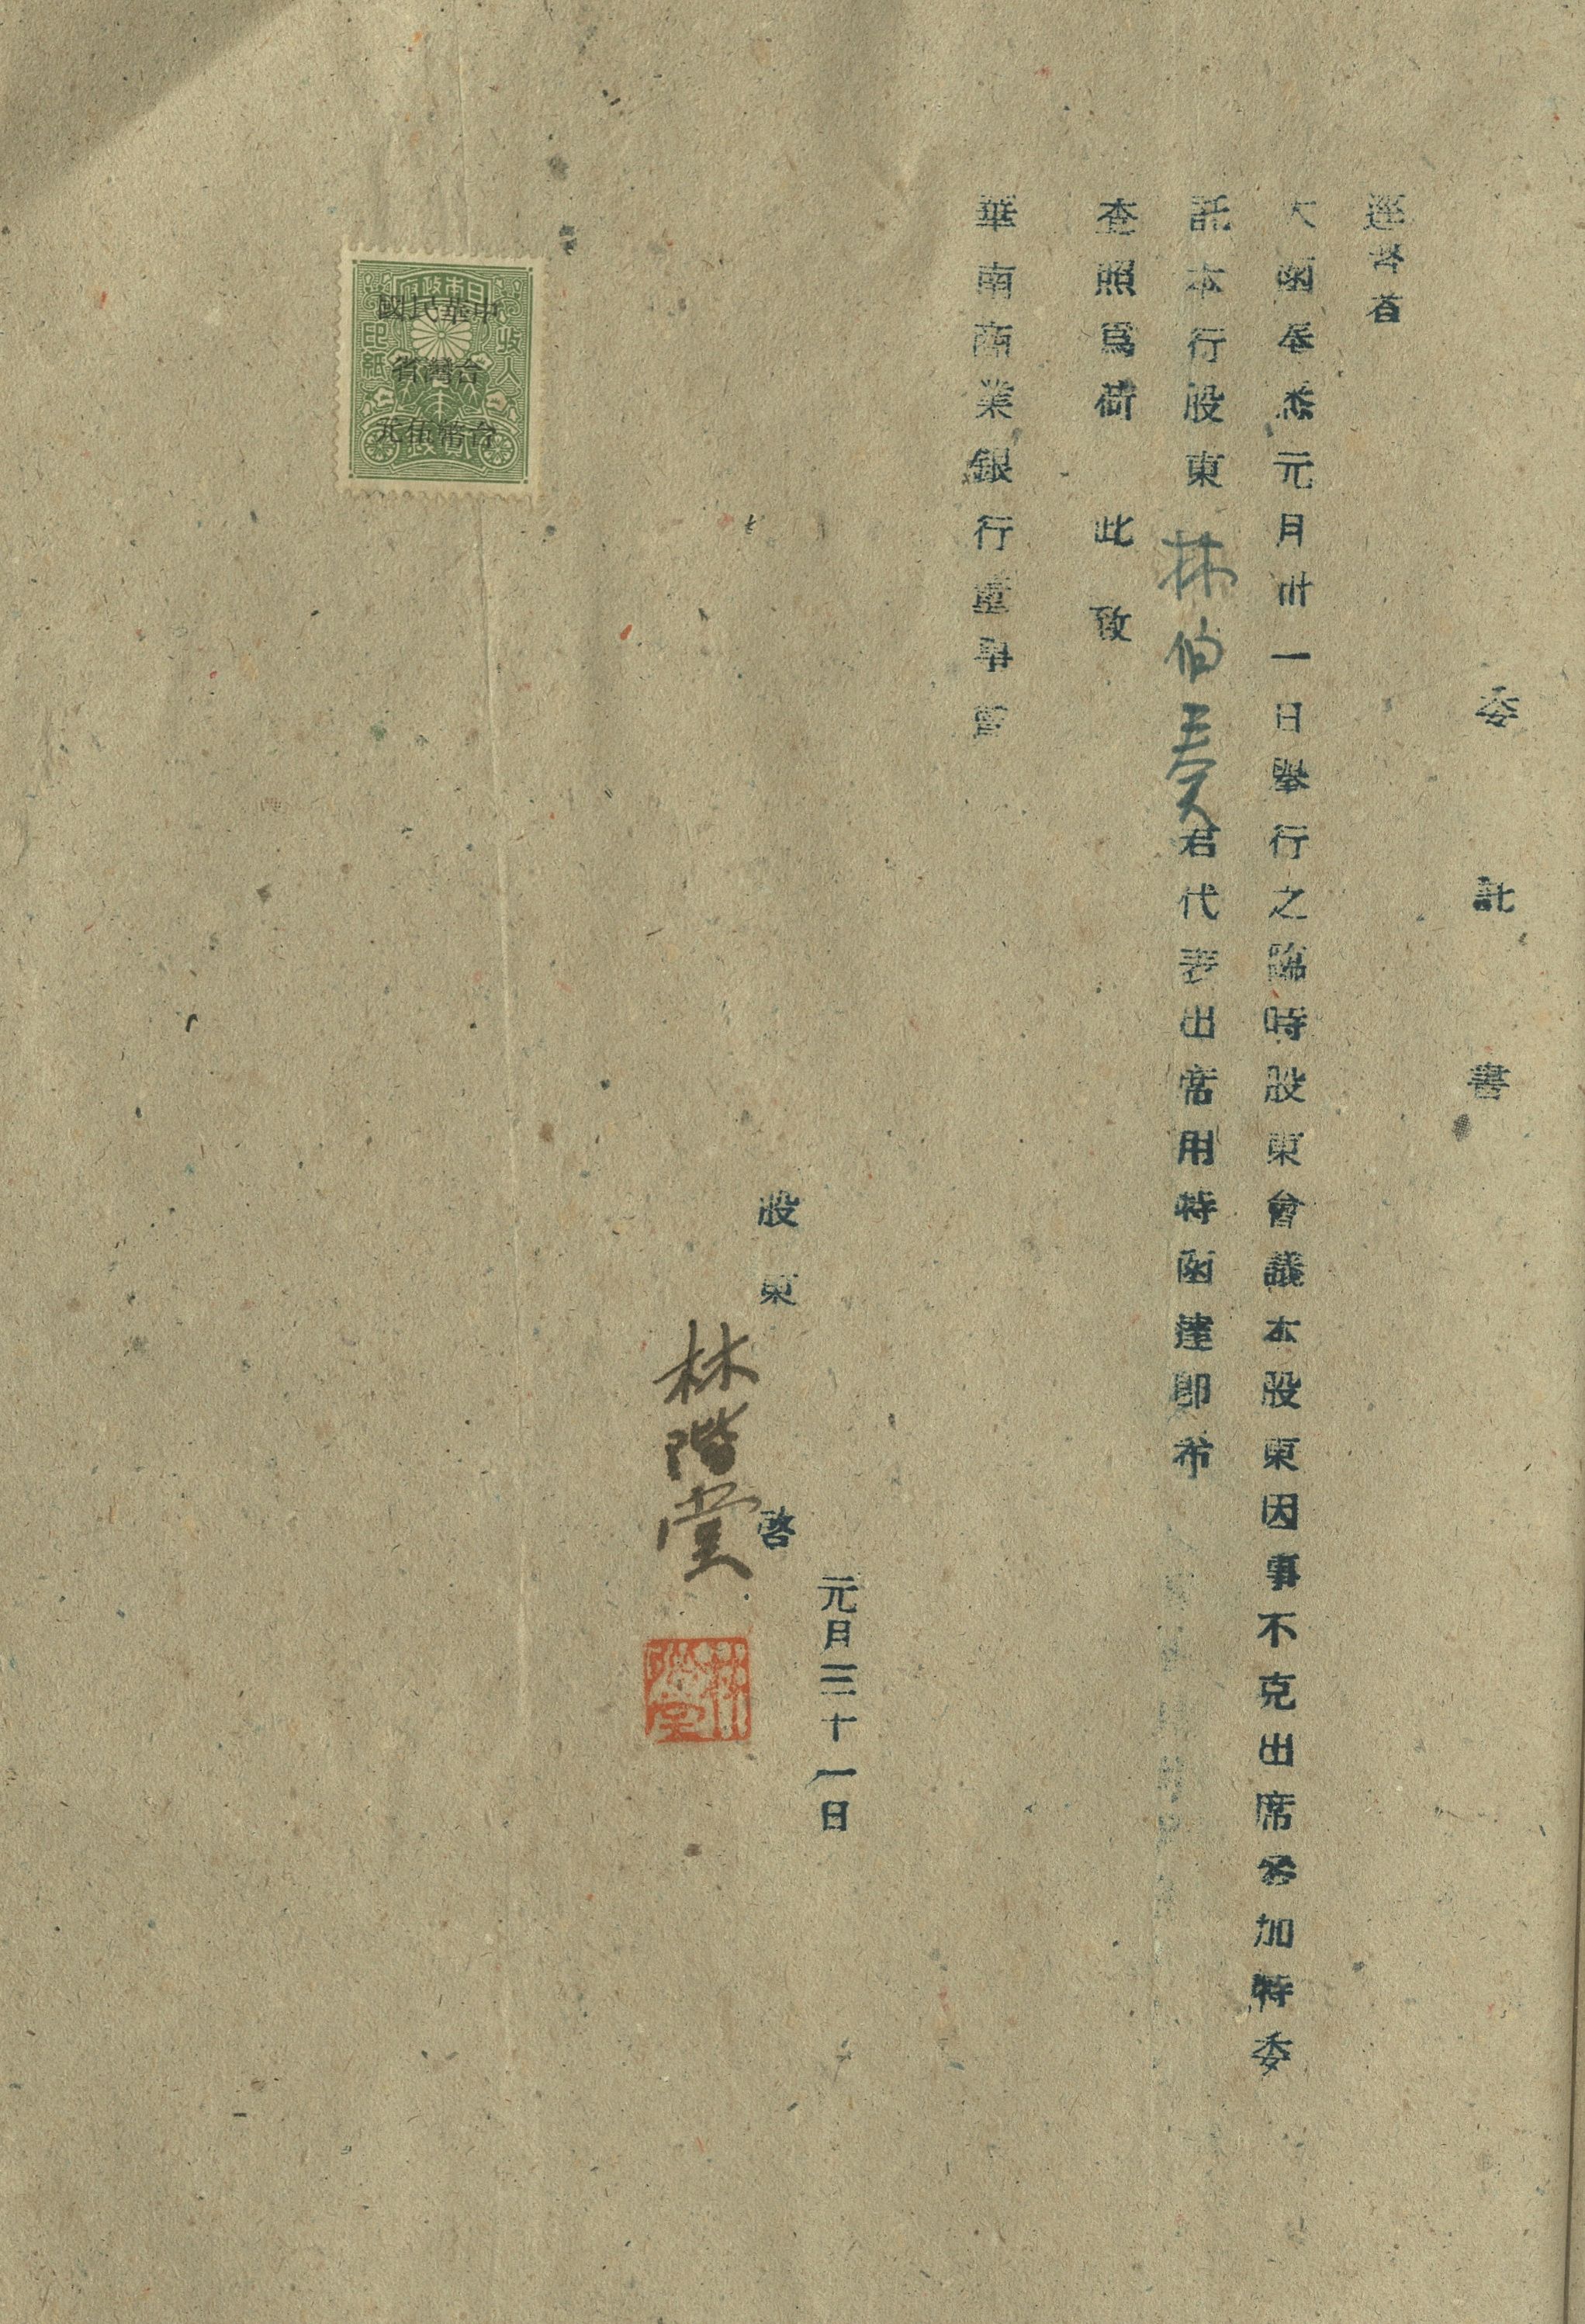 委託書
逕啓者
大函奉悉元月卅一日舉行之臨時股東會議本股東因事不克出席參加特委
託本行股東林伯奏君代表出席用特函達即希
查照爲荷 此致
華南商業銀行董事會
元月三十一日
股東 啓
林階堂
林階堂
日本政府
收入印紙
中華民國
台灣省
台幣伍元